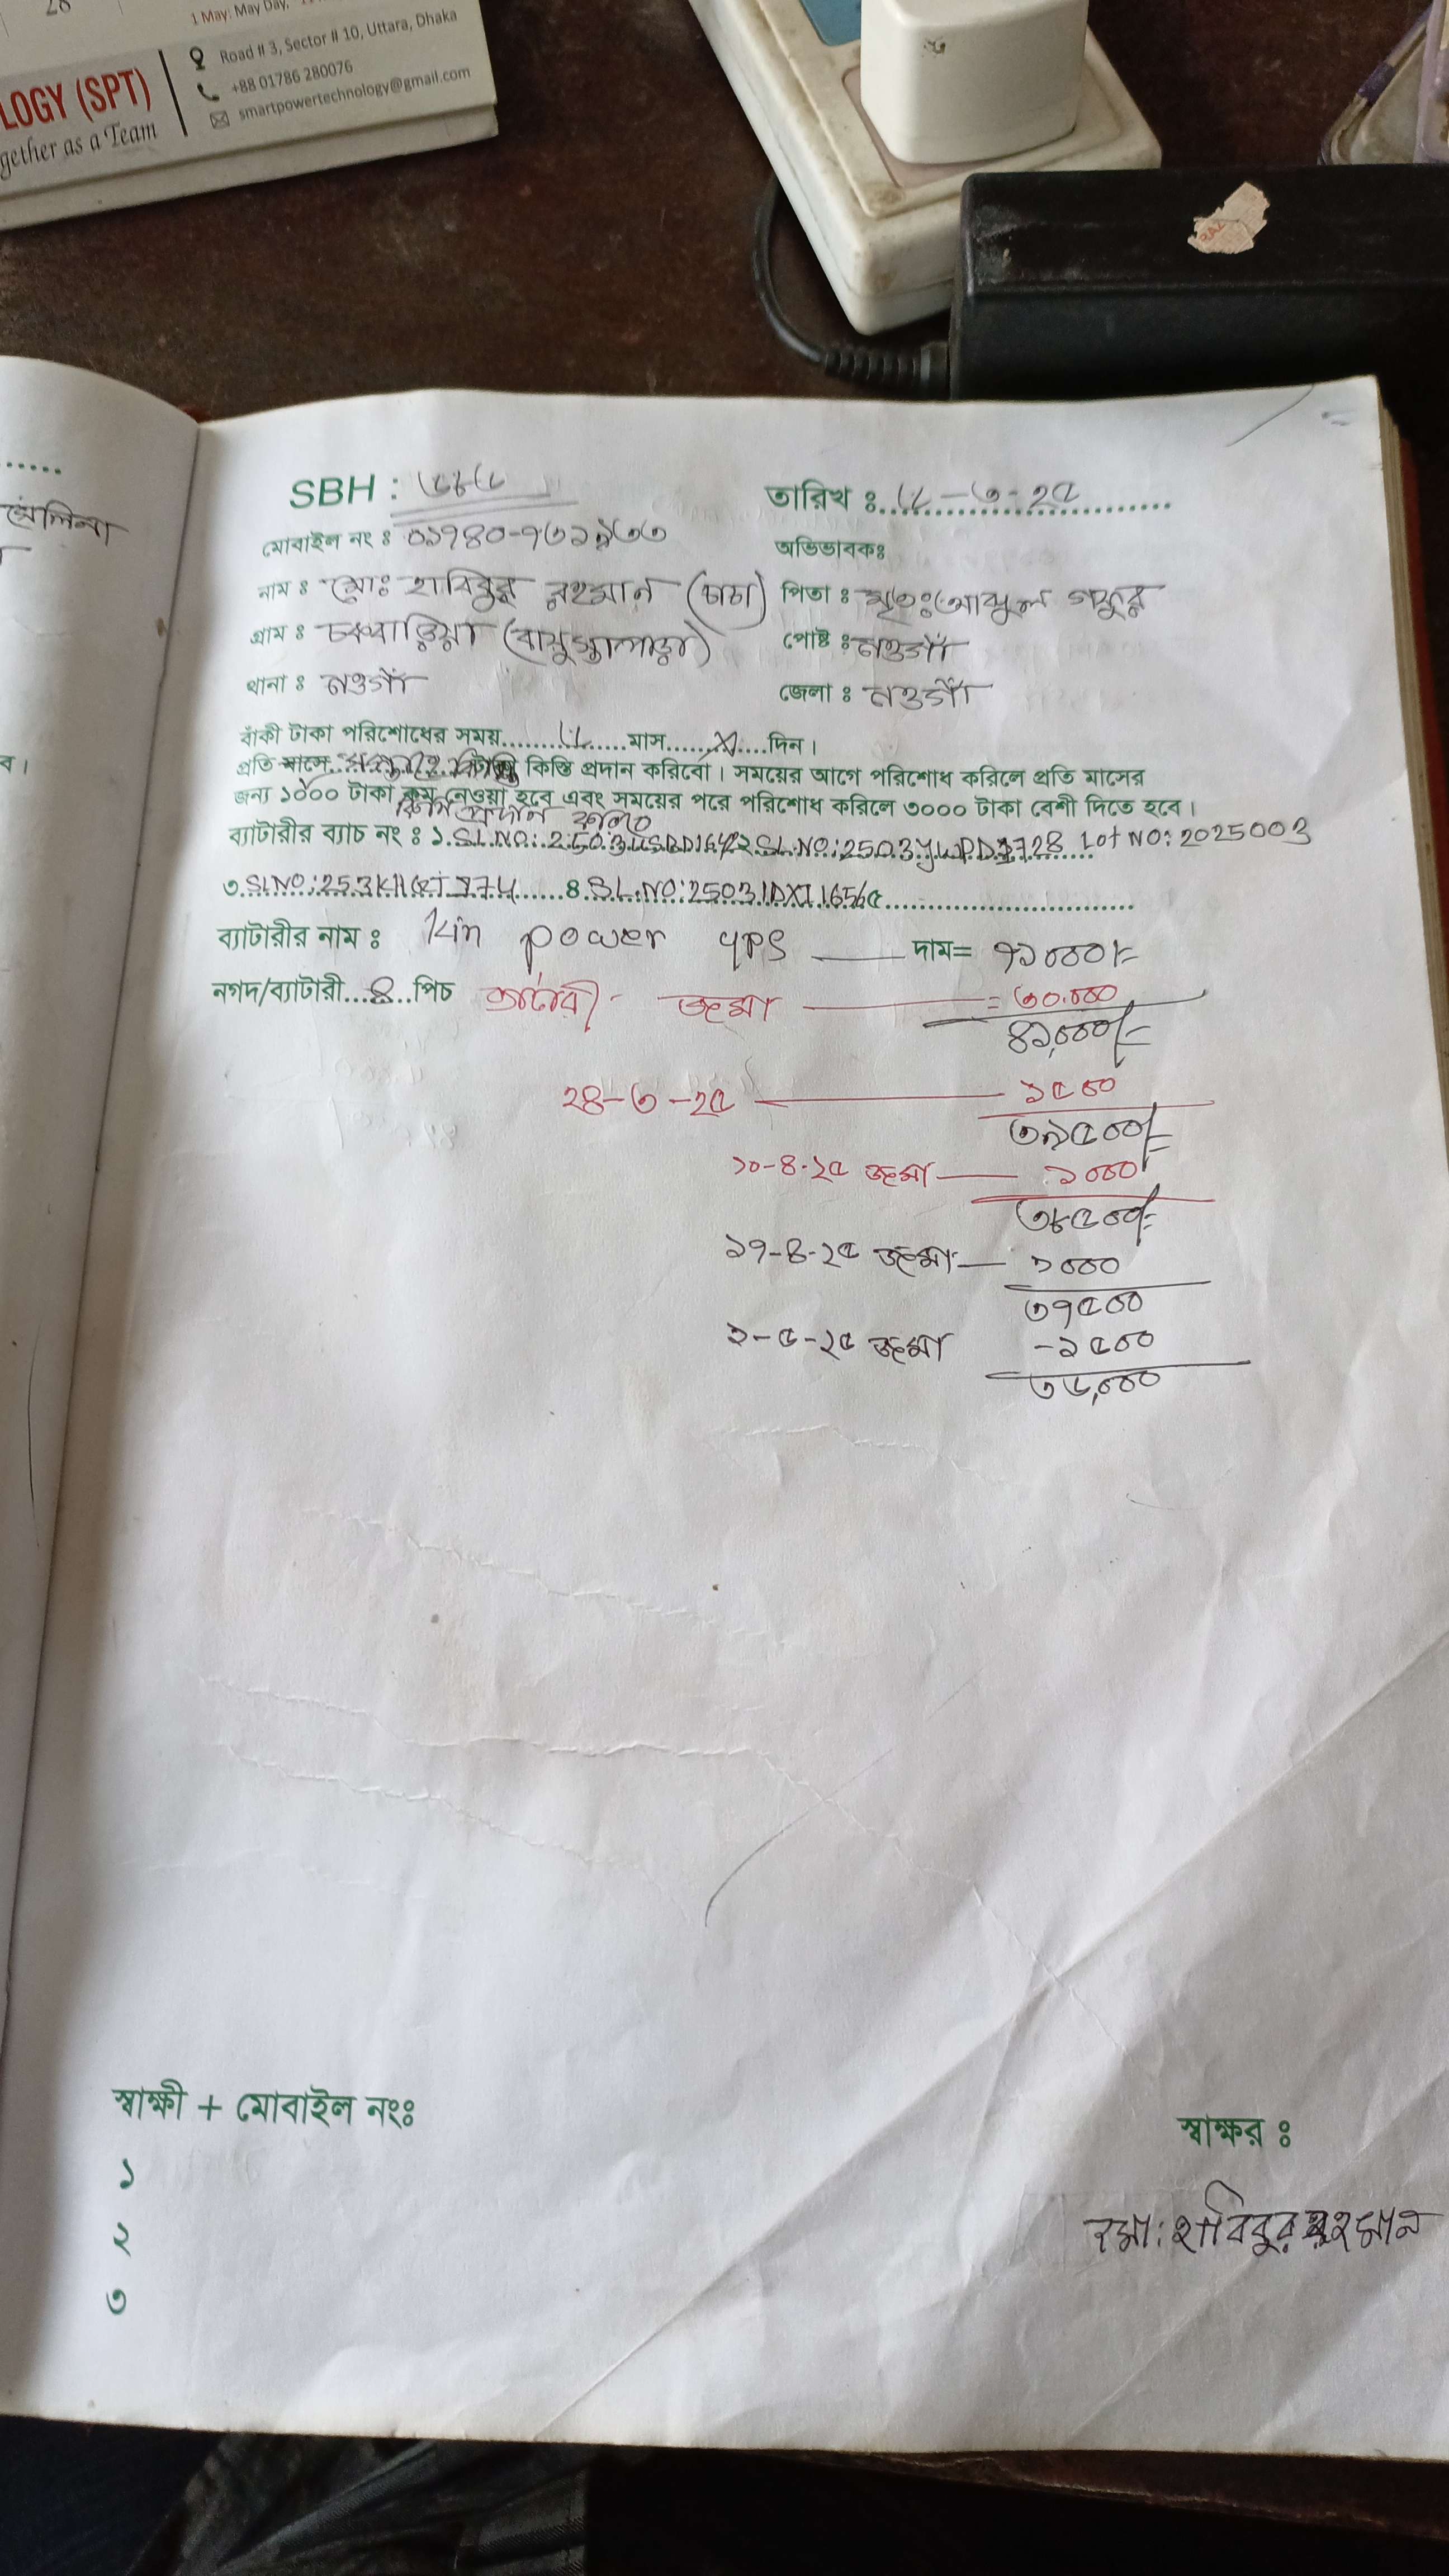 28
1 May: May Day,
LOGY (SPT)
gether as a Team
Road # 3, Sector # 10, Uttara, Dhaka
+88 01786 280076
smartpowertechnology@gmail.com
SBH : ৬৮৬
তারিখ ঃ ৬-৩-২৫
মোবাইল নং ঃ ০১৭৪০-৭৬১৯৩৩
অভিভাবকঃ
নাম ঃ মোঃ হাবিবুর রহমান (চাচা) পিতা ঃ মৃতঃ আব্দুল গফুর
গ্রাম ঃ পোষ্ট ঃ নওগাঁ
থানা ঃ নওগাঁ জেলা ঃ নওগাঁ
বাঁকী টাকা পরিশোধের সময়.........৬......মাস......X....দিন।
প্রতি মাসে কিস্তি প্রদান করিবো। সময়ের আগে পরিশোধ করিলে প্রতি মাসের
জন্য ১০০০ টাকা কম নেওয়া হবে এবং সময়ের পরে পরিশোধ করিলে ৩০০০ টাকা বেশী দিতে হবে।
ব্যাটারীর ব্যাচ নং ঃ ১. SL.NO: ২ SL.NO: 2503 Lot NO: 2025003
৩. SL NO: ৪. SL.NO: 25031DXI1656 ৫
ব্যাটারীর নাম ঃ Kin power দাম= ৭১০০০/=
নগদ/ব্যাটারী...৪..পিচ জমা = ৩০.০০০
৪১,০০০/=
২৪-৩-২৫ ১৫০০
৩৯৫০০/=
১০-৪-২৫ জমা ১০০০
৩৮৫০০/=
১৭-৪-২৫ জমা ১০০০
৩৭৫০০
১-৫-২৫ জমা -১৫০০
৩৬,০০০
স্বাক্ষী + মোবাইল নংঃ
স্বাক্ষর ঃ
১
২
৩
মো: হাবিবুর রহমান